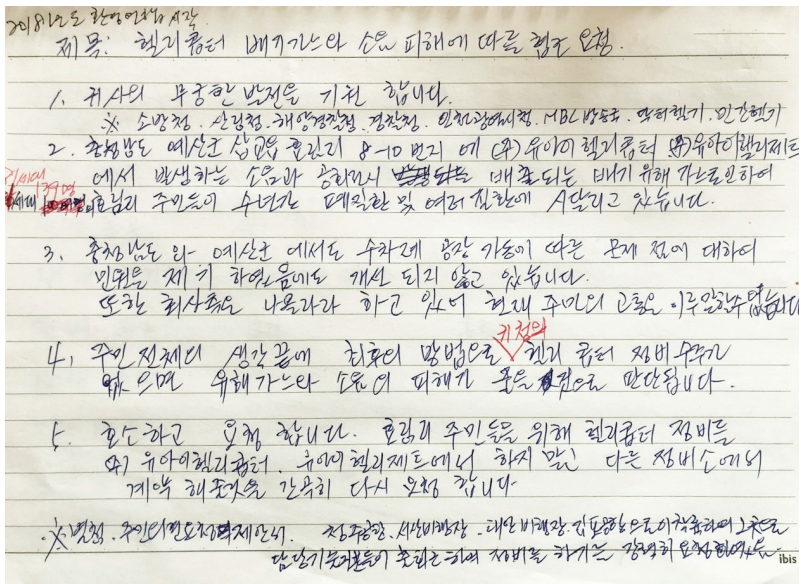 2018년도 환경연합 시작
제목: 헬리콥터 배기가스와 소음 피해에 따른 협조 요청.
1. 귀사의 무궁한 발전을 기원 합니다.
※ 소방청. 산림청. 해양경찰청. 경찰청. 인천광역시청. MBC 방송국. 닥터헬기. 민간헬기
2. 충청남도 예산군 삽교읍 효림리 8-10 번지 에 (주)유아이헬리콥터 (주)유아이헬리제트
에서 발생하는 소음과 공회전시 배출되는 배기 유해 가스로 인하여
세대 139명
세대 효림리 주민들이 수년간 폐밀한 및 여러 질환에 시달리고 있습니다.
3. 충청남도 와 예산군 에서도 수차례 공장 가동에 따른 문제 점에 대하여
민원을 제기 하였음에도 개선 되지 않고 있습니다.
또한 회사측은 나몰라라 하고 있어 현재 주민의 고통을 이루 말할수 없습니다
4. 주민 전체의 생각끝에 최후의 방법으로 귀청의 헬리콥터 정비 수주가
없으면 유해가스와 소음의 피해가 줄을 것으로 판단됩니다.
5. 호소하고 요청 합니다. 효림리 주민들을 위해 헬리콥터 정비를
(주) 유아이헬리콥터. 유아이헬리제트에서 하지 말고 다른 정비소에서
계약 해줄것을 간곡히 다시 요청 합니다
※ 별첨. 주민의견요청제안서. 청주공항. 서산비행장. 태안비행장. 김포공항으로 이착륙하여 그곳으로
담당기술자분들이 출퇴근하여 정비를 하기를 강력히 요청하였음.
ibis